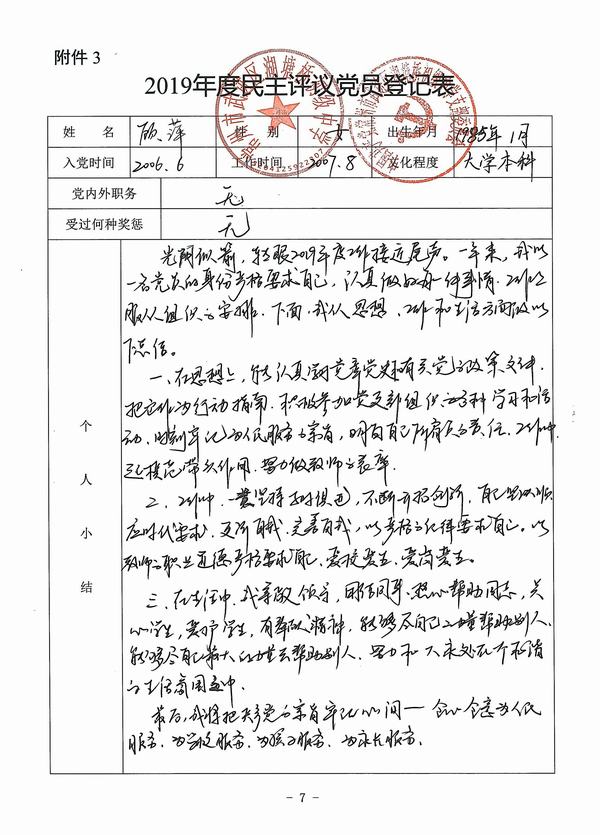 附件 3
2019年度民主评议党员登记表
姓 名 顾萍 性 别 女 出生年月 1985年1月
入党时间 2006.6 工作时间 2007.8 文化程度 大学本科
党内外职务 无
受过何种奖惩 无
个人小结
光阴似箭,转眼2019年度工作接近尾声。一年来,我以
一名党员的身份严格要求自己,认真做好每一件事情,工作上
服从组织的安排。下面,我从思想、工作和生活方面做以
下总结。
一、在思想上,能认真学习党章党史和有关党的政策文件,
把它作为行动指南,积极参加党支部组织的各种学习和活
动,时刻牢记为人民服务的宗旨,明白自己所肩负的责任,工作中
起模范带头作用,努力做教师的表率。
二、工作中,一贯坚持与时俱进,不断开拓创新,自己
应时代要求,更新自我,完善自我,以严格的纪律要求自己。以
教师的职业道德严格要求自己,爱校爱生,爱岗爱生。
三、在生活中,我尊敬领导,团结同事,热心帮助同志,关
心学生,爱护学生,有奉献精神,能够尽自己的力量帮助别人,
能够尽自己最大的力量去帮助别人,努力和大家处在一个和谐
的生活氛围之中。
最后,我将把共产党的宗旨牢记心间——全心全意为人民
服务,为学校服务,为孩子服务,为家长服务。
- 7 -